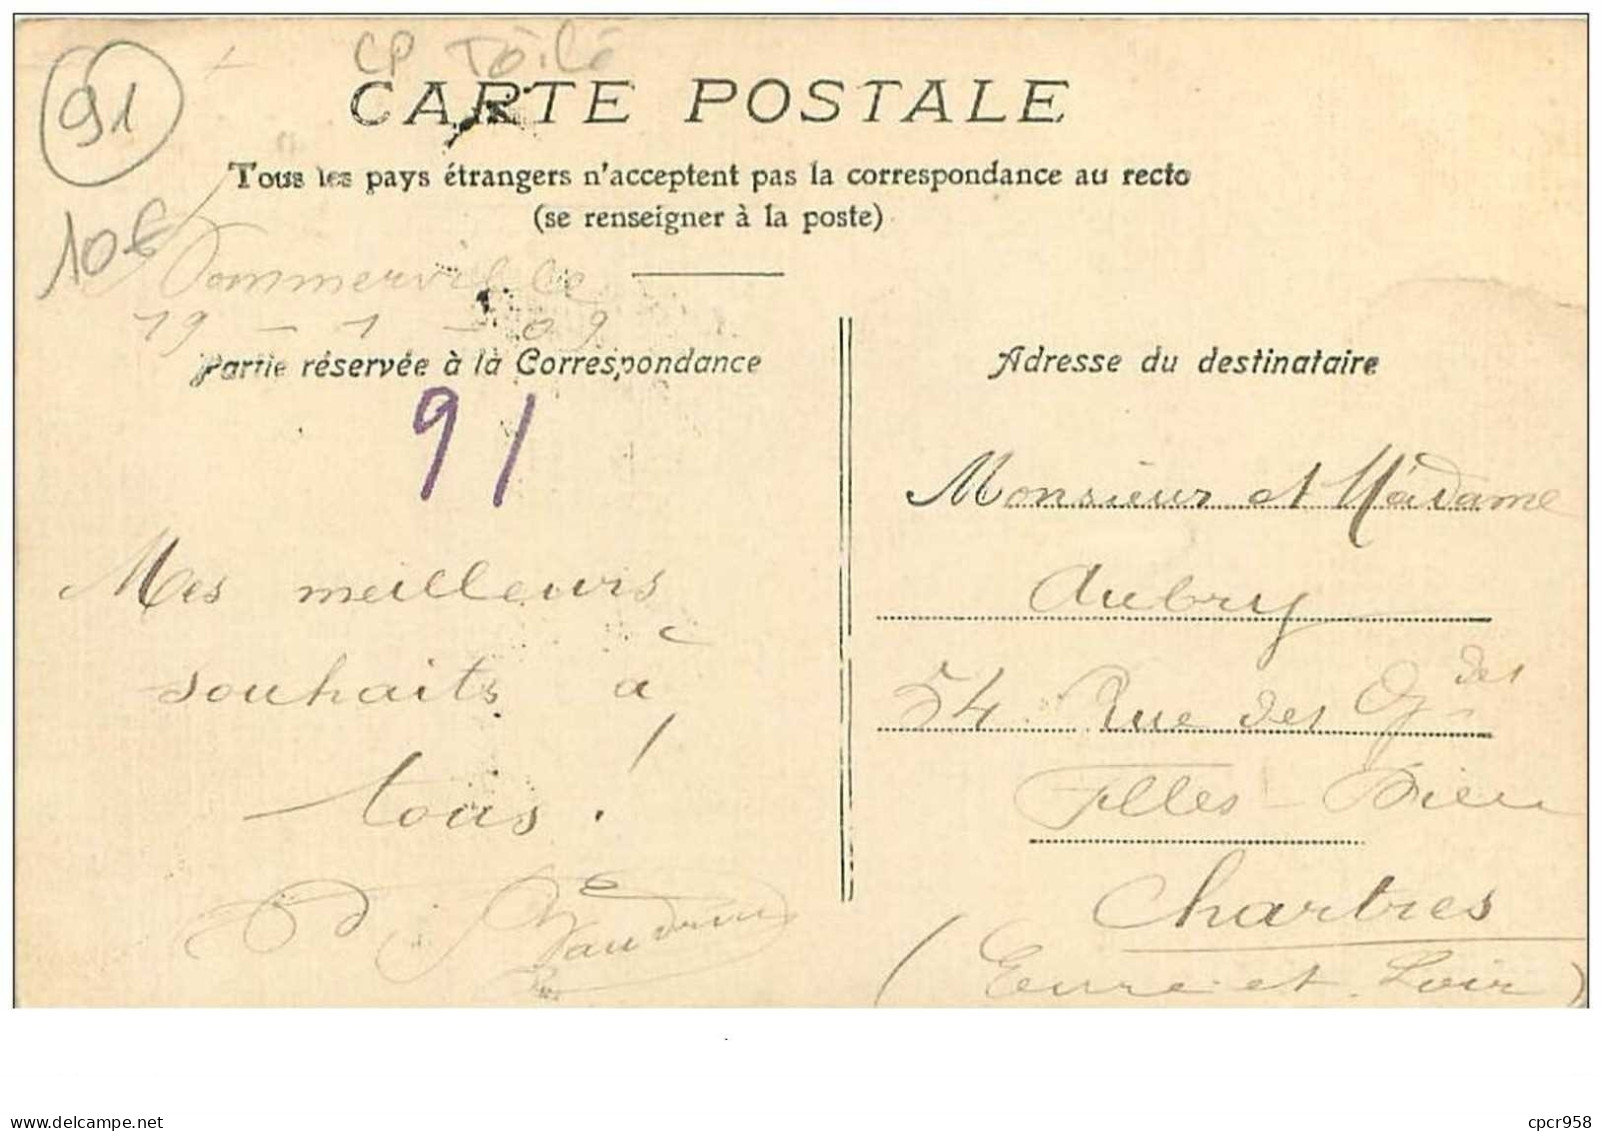 CP Toilé
91
CARTE POSTALE
Tous les pays étrangers n'acceptent pas la correspondance au recto
(se renseigner à la poste)
10€
Pommerville
19 - 1 - 09
Partie réservée à la Correspondance
91
Mes meilleurs
souhaits à
tous !
Adresse du destinataire
Monsieur et Madame
Aubry
54 Rue des Gdes
Filles-Dieu
Chartres
(Eure et Loir)
www.delcampe.net
cpcr958